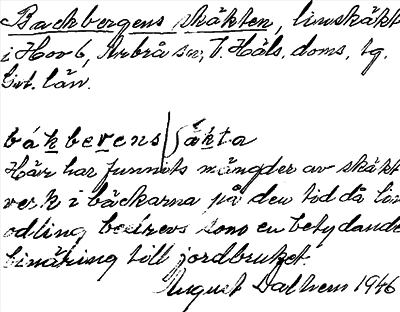 Backbergens skäkten, linskäkt
i Hov 6, Arbrå sn, V. Häls. doms, tg.
Gvt. län.
bákbevens/säkta
Här har funnits mängder av skäkt
verk i bäckarna på den tid då lin
odling bedrevs som en betydande
binäring till jordbruket.
August Dalhem 1946